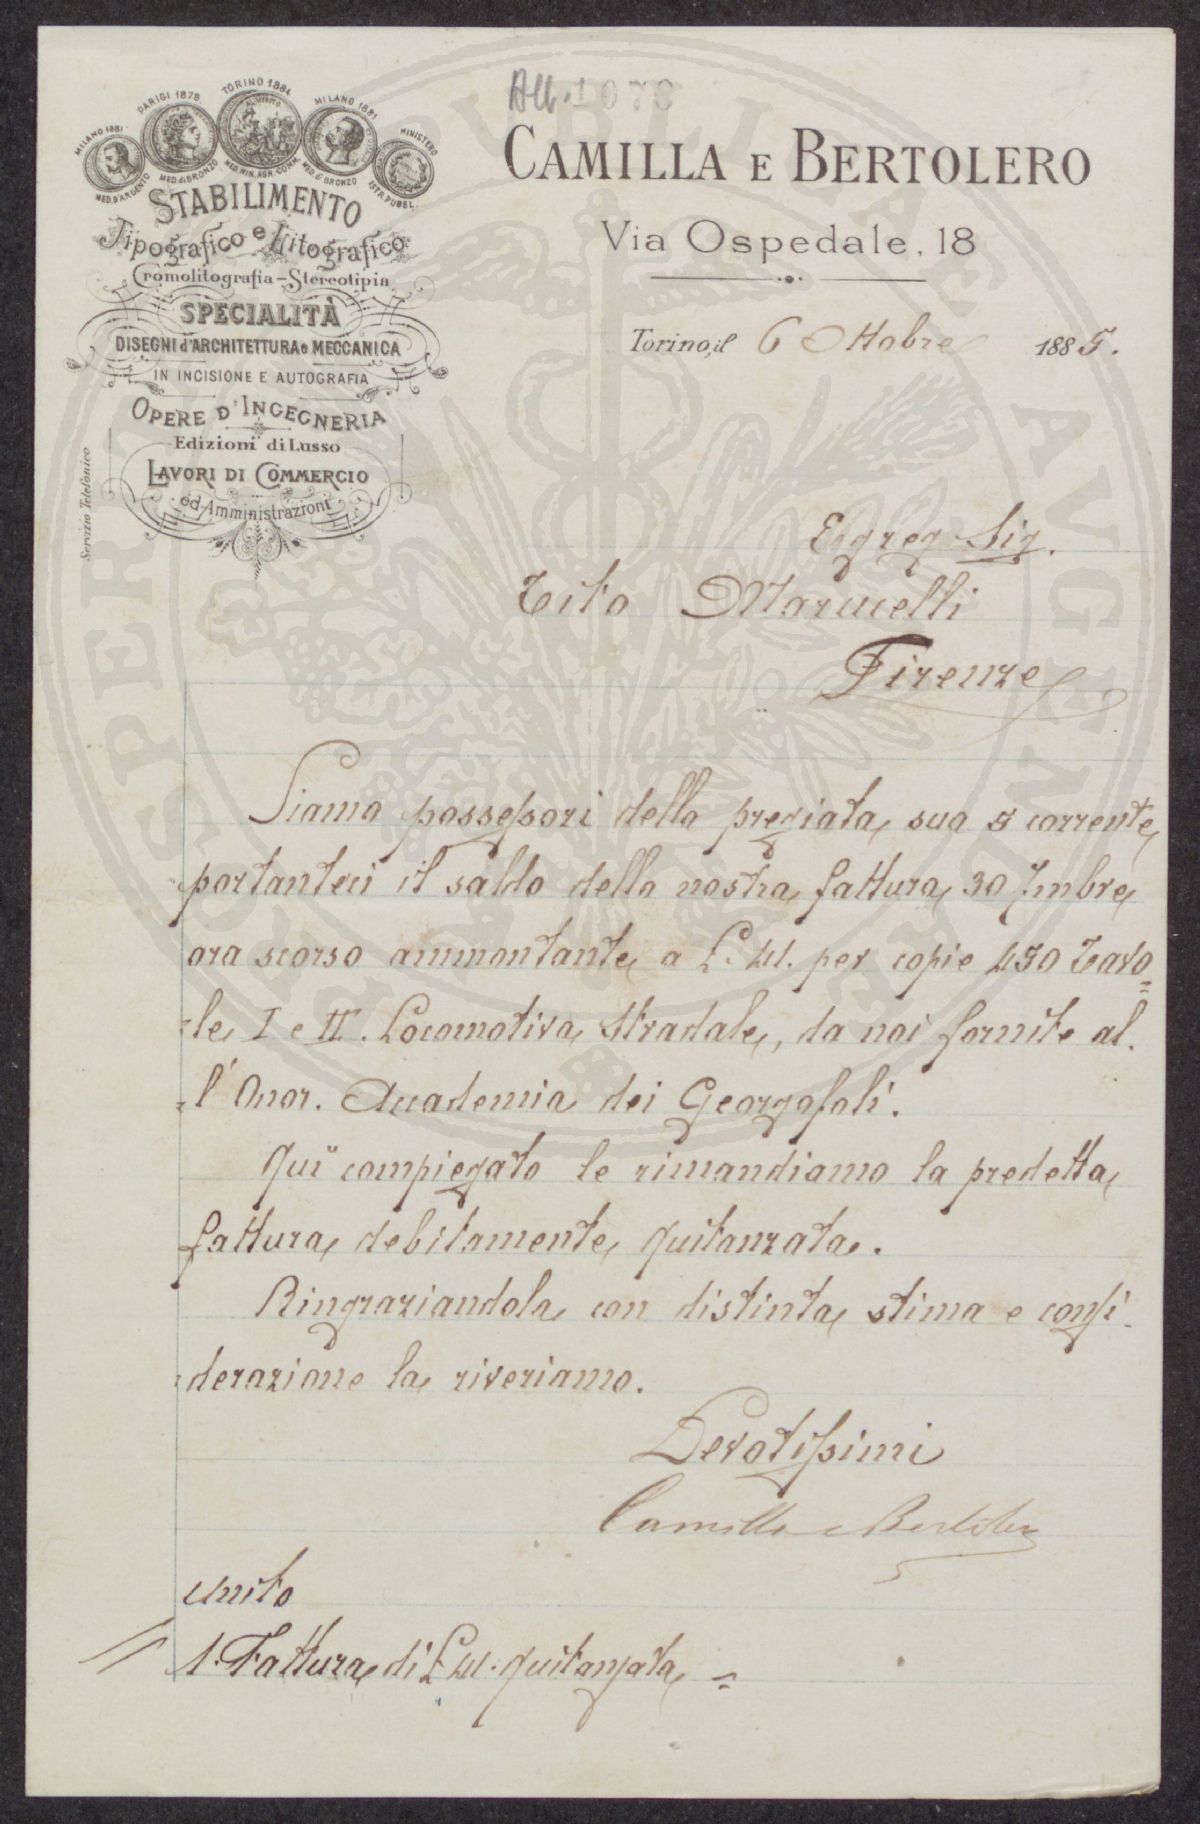 All. 1078
MILANO 1881 PARIGI 1878 TORINO 1884 MILANO 1881 MINISTERO
MED. D'ARGENTO MED. di BRONZO MED. MIN. AGR. COMM. MED. di BRONZO ISTR. PUBBL.
STABILIMENTO
Tipografico e Litografico
Cromolitografia - Stereotipia
SPECIALITÀ
DISEGNI d'ARCHITETTURA e MECCANICA
IN INCISIONE E AUTOGRAFIA
OPERE D'INGEGNERIA
Edizioni di Lusso
LAVORI DI COMMERCIO
ed Amministrazioni
Servizio Telefonico
CAMILLA E BERTOLERO
Via Ospedale, 18
Torino, il 6 Ottobre 1885.
Egreg Sig.
Tito Marucelli
Firenze
Siamo possessori della pregiata sua 5 corrente
portanteci il saldo della nostra fattura 30 7mbre
ora scorso ammontante a L. 41. per copie 450 Tavo=
le I e II. Locomotiva Stradale, da noi fornite al.
l'Onor. Accademia dei Georgofoli.
Qui compiegato le rimandiamo la predetta
fattura debitamente quitanzata.
Ringraziandola con distinta stima e consi-
derazione la riveriamo.
Devotissimi
Camilla e Bertolero
Unito
1. Fattura di L 41. quitanzata =
PROSPERITATI PUBLICAE AVGENDAE